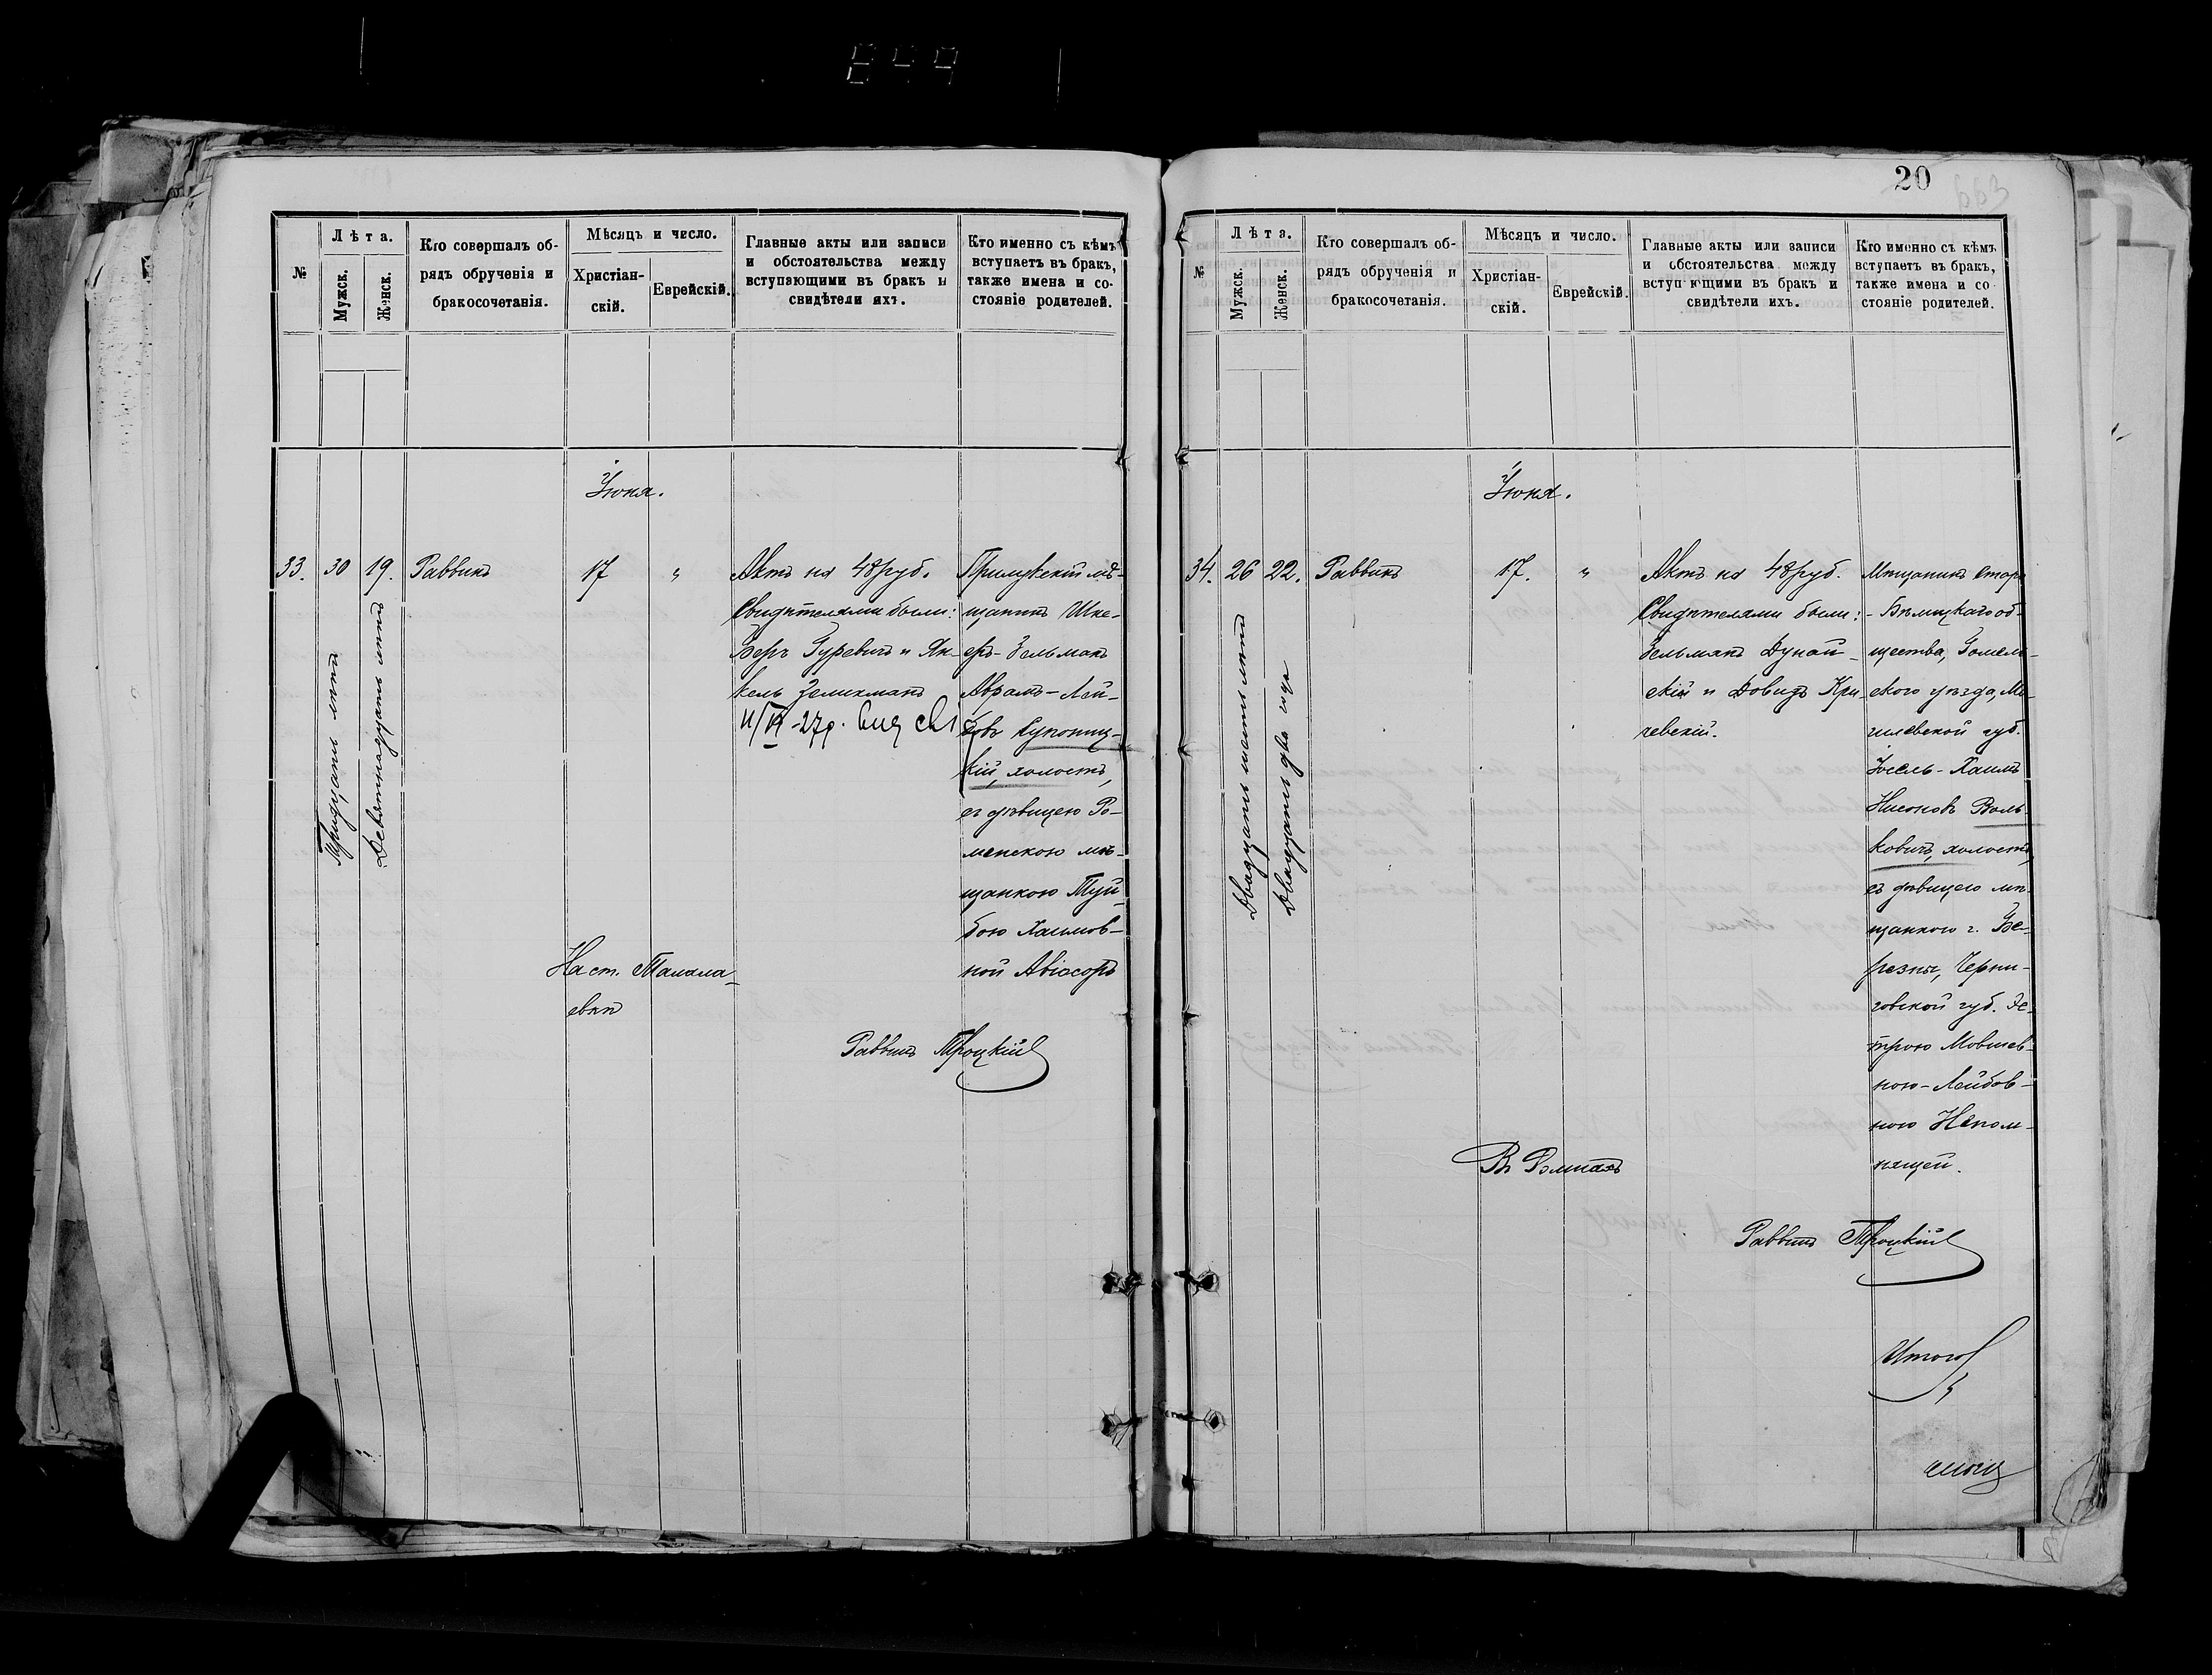 20
№
Лѣта.
Мужск.
Женск.
Кто совершалъ об-
рядъ обрученія и
бракосочетанія.
Мѣсяцъ и число.
Христіан-
скій.
Еврейскій.
Главные акты или записи
и обстоятельства между
вступающими въ бракъ и
свидѣтели ихъ.
Кто именно съ кѣмъ
вступаетъ въ бракъ,
также имена и со-
стояніе родителей.
Іюня.
33.
30
Тридцать лѣтъ
19.
Девятнадцать лѣтъ
Раввинъ
17
"
Актъ на 48 руб.
Свидѣтелями были:
Беръ Гуревичъ и Ян-
кель Зелихманъ
Прилукскій мѣ-
щанинъ Шне-
еръ-Зельманъ
Абрамъ-Лей-
бовъ Куповец-
кій, холостъ,
съ дѣвицею Ро-
менскою мѣ-
щанкою Туй-
бою Хаимов-
ной Авіасоръ
На ст. Талала-
евкѣ
Раввинъ Троцкій
№
Лѣта.
Мужск.
Женск.
Кто совершалъ об-
рядъ обрученія и
бракосочетанія.
Мѣсяцъ и число.
Христіан-
скій.
Еврейскій.
Главные акты или записи
и обстоятельства между
вступающими въ бракъ и
свидѣтели ихъ.
Кто именно съ кѣмъ
вступаетъ въ бракъ,
также имена и со-
стояніе родителей.
Іюня.
34.
26
Двадцать шесть лѣтъ
22.
Двадцать два года
Раввинъ
17.
"
Актъ на 48 руб.
Свидѣтелями были:
Зельманъ Дунай-
скій и Довидъ Кри-
чевскій.
Мѣщанинъ Старо
-Бѣлицкаго об-
щества, Гомель-
скаго уѣзда, Мо-
гилевской губ.
Іосель-Хаимъ
Нисоновъ Воль-
ковичъ, холостъ,
съ дѣвицею мѣ-
щанкою г. Бе-
резны, Черни-
говской губ. Эс-
трою Мовшев-
ною-Лейбов-
ною Непом-
нящей.
Въ Ромнахъ
Раввинъ Троцкій
Итого